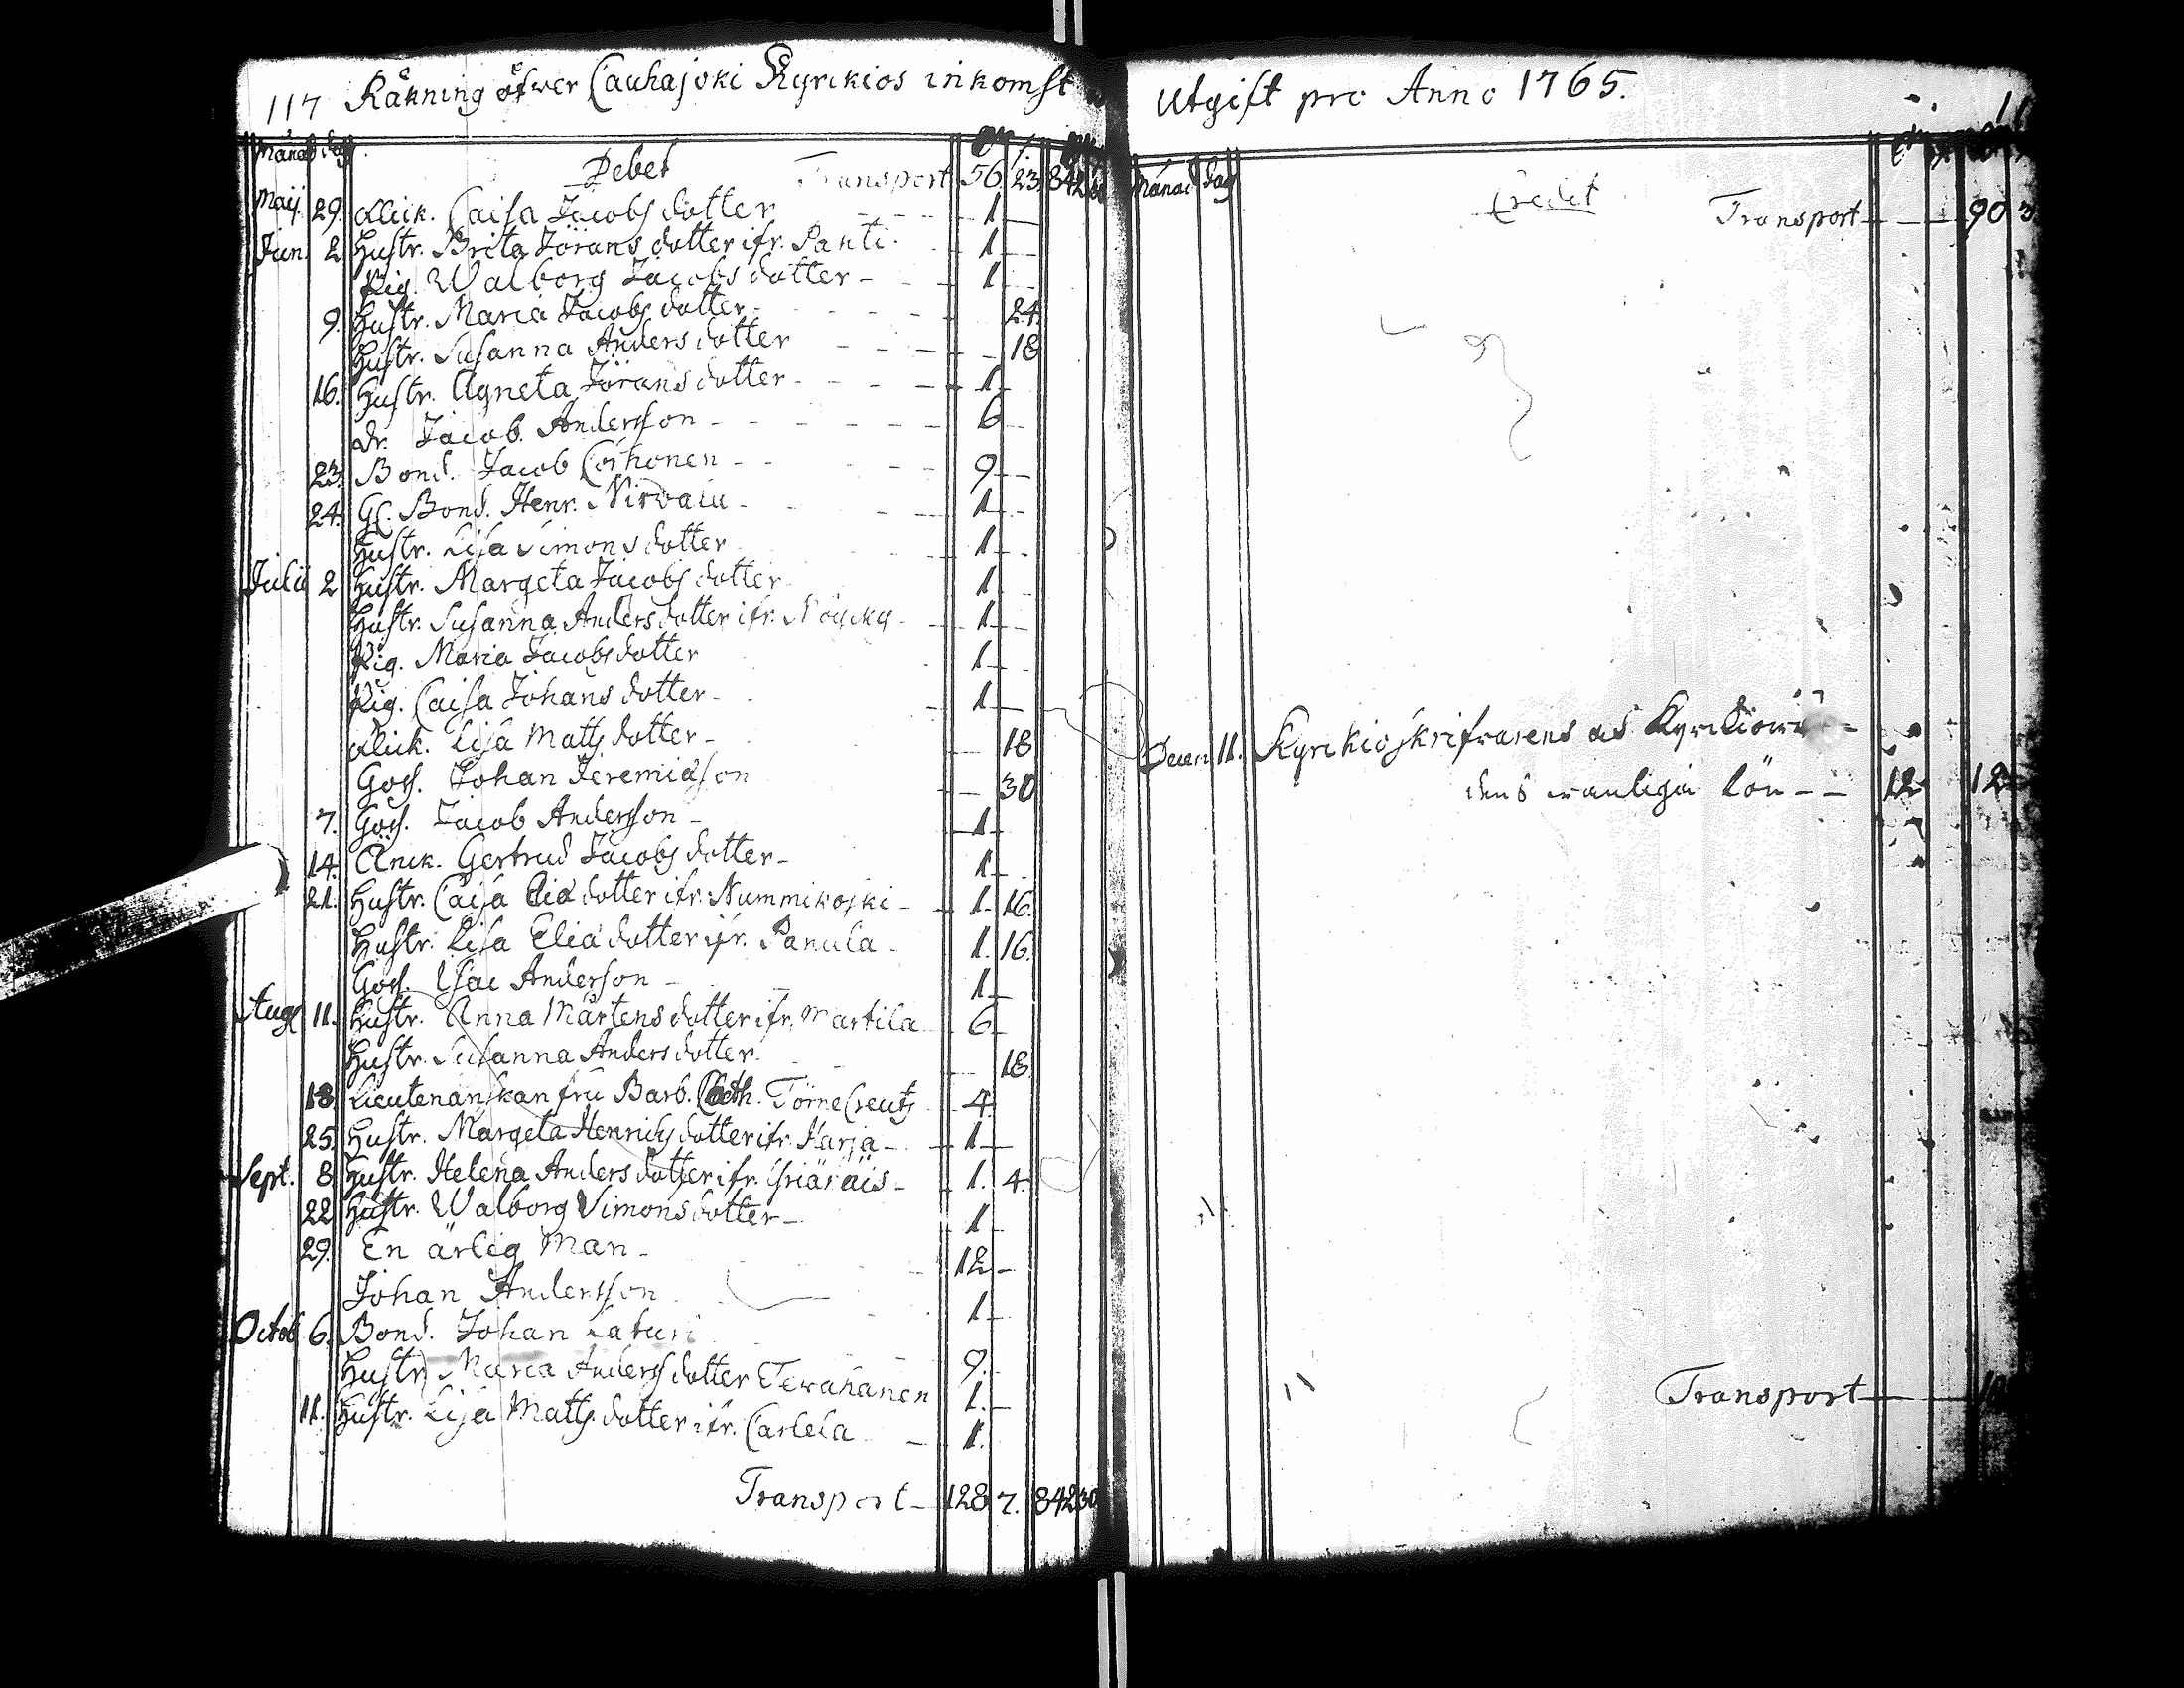 117 Räkning öfwer Cauhajoki Kyrckios inkomst
Månad dag
Debet Transport 56. 23. 842
Maij. 29. Caisa Jacobs dotter 1
Jun. 2 Hustr. Brita Jörans dotter ifr. Panti. 1
Pig. Walborg Jacobs dotter 1
9. Hustr. Maria Jacobs dotter 24.
Hustr. Susanna Anders dotter 18
16. Hustr. Agneta Jörans dotter 1
dr. Jacob Andersson 6
23. Bond. Jacob 9
24. Gl. Bond. Henr. Nirvala 1
Hustr. Lisa Simons dotter 1
Julii 2 Hustr. Margeta Jacobs dotter 1
Hustr. Susanna Anders dotter ifr. 1
Pig. Maria Jacobs dotter 1
Pig. Caisa Johans dotter 1
Lisa Matts dotter 18
Goss. Johan Jeremiasson 30
7. Goss. Jacob Andersson 1
14. Enck. Gertrud Jacobs dotter 1
21. Hustr. Caisa Elia dotter ifr. Nummikoski 1. 16.
Hustr. Lisa Elia dotter ifr. Panula 1. 16.
Goss. Isac Anderson 1
Aug 11. Hustr. Anna Mårtens dotter ifr. Martila 6
Hustr. Susanna Anders dotter. 18
18. Lieutenanskan fru Barb. Cath. TörneCreutz 4.
25. Hustr. Margeta Henrichs dotter ifr. Harja 1
Sept. 8 Hustr. Helena Anders dotter ifr. 1. 4.
22 Hustr. Walborg Simons dotter 1
29. En ärlig Man 12
Johan Andersson 1
Octob 6. Bond. Johan Laturi 9.
Hustr. Maria Anders dotter 1.
11. Hustr. Lisa Matts dotter ifr. Carlela 1.
Transport 128 7. 842 30
Utgift pro Anno 1765.
Månad dag
Credit
Transport 90
Decem 11. Kyrckioskrifwarens
dens wanliga lön 12 12
Transport